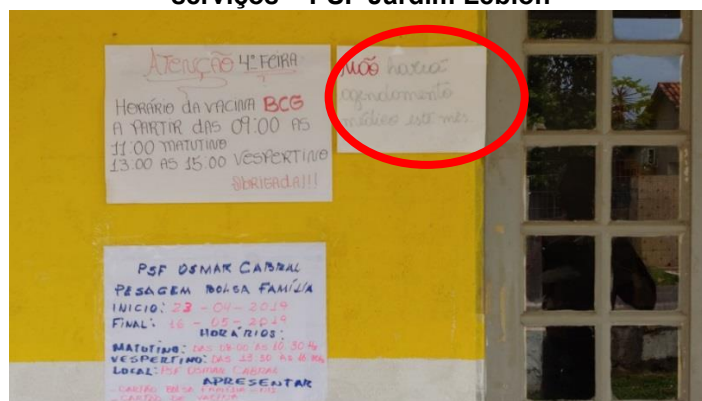 serviços – PSF Jardim Leblon
ATENÇÃO 4ª FEIRA
HORÁRIO DA VACINA BCG
A PARTIR DAS 09:00 AS
11:00 MATUTINO
13:00 AS 15:00 VESPERTINO
OBRIGADA!!!
NÃO haverá
agendamento
médico este mês.
PSF OSMAR CABRAL
PESAGEM BOLSA FAMÍLIA
INICIO: 23 - 04 - 2019
FINAL: 16 - 05 - 2019
HORÁRIOS:
MATUTINO: DAS 08:00 AS 10:30 h
VESPERTINO: DAS 13:30 AS
LOCAL: PSF OSMAR CABRAL
APRESENTAR
- CARTÃO BOLSA FAMÍLIA
- CARTÃO DE VACINA